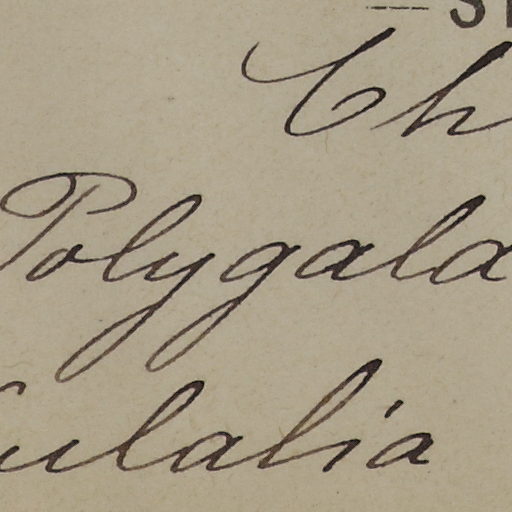 Ch
Polygala
ulalia